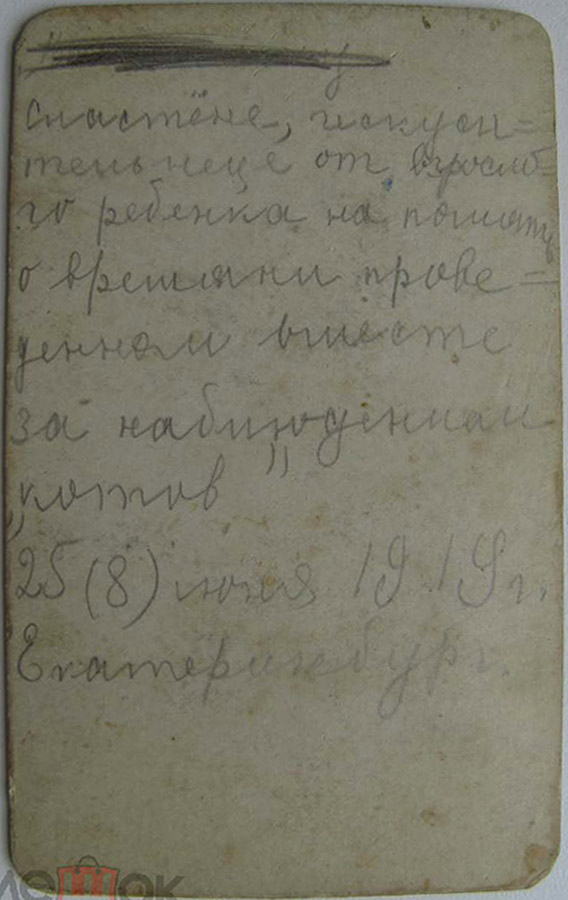 сластёне, искуси=
тельнице от взросло=
го ребенка на память
о времяни прове=
денном вместе
за наблюдениам
„котов"
25 (8) июня 1919 г.
Екатеринбург.